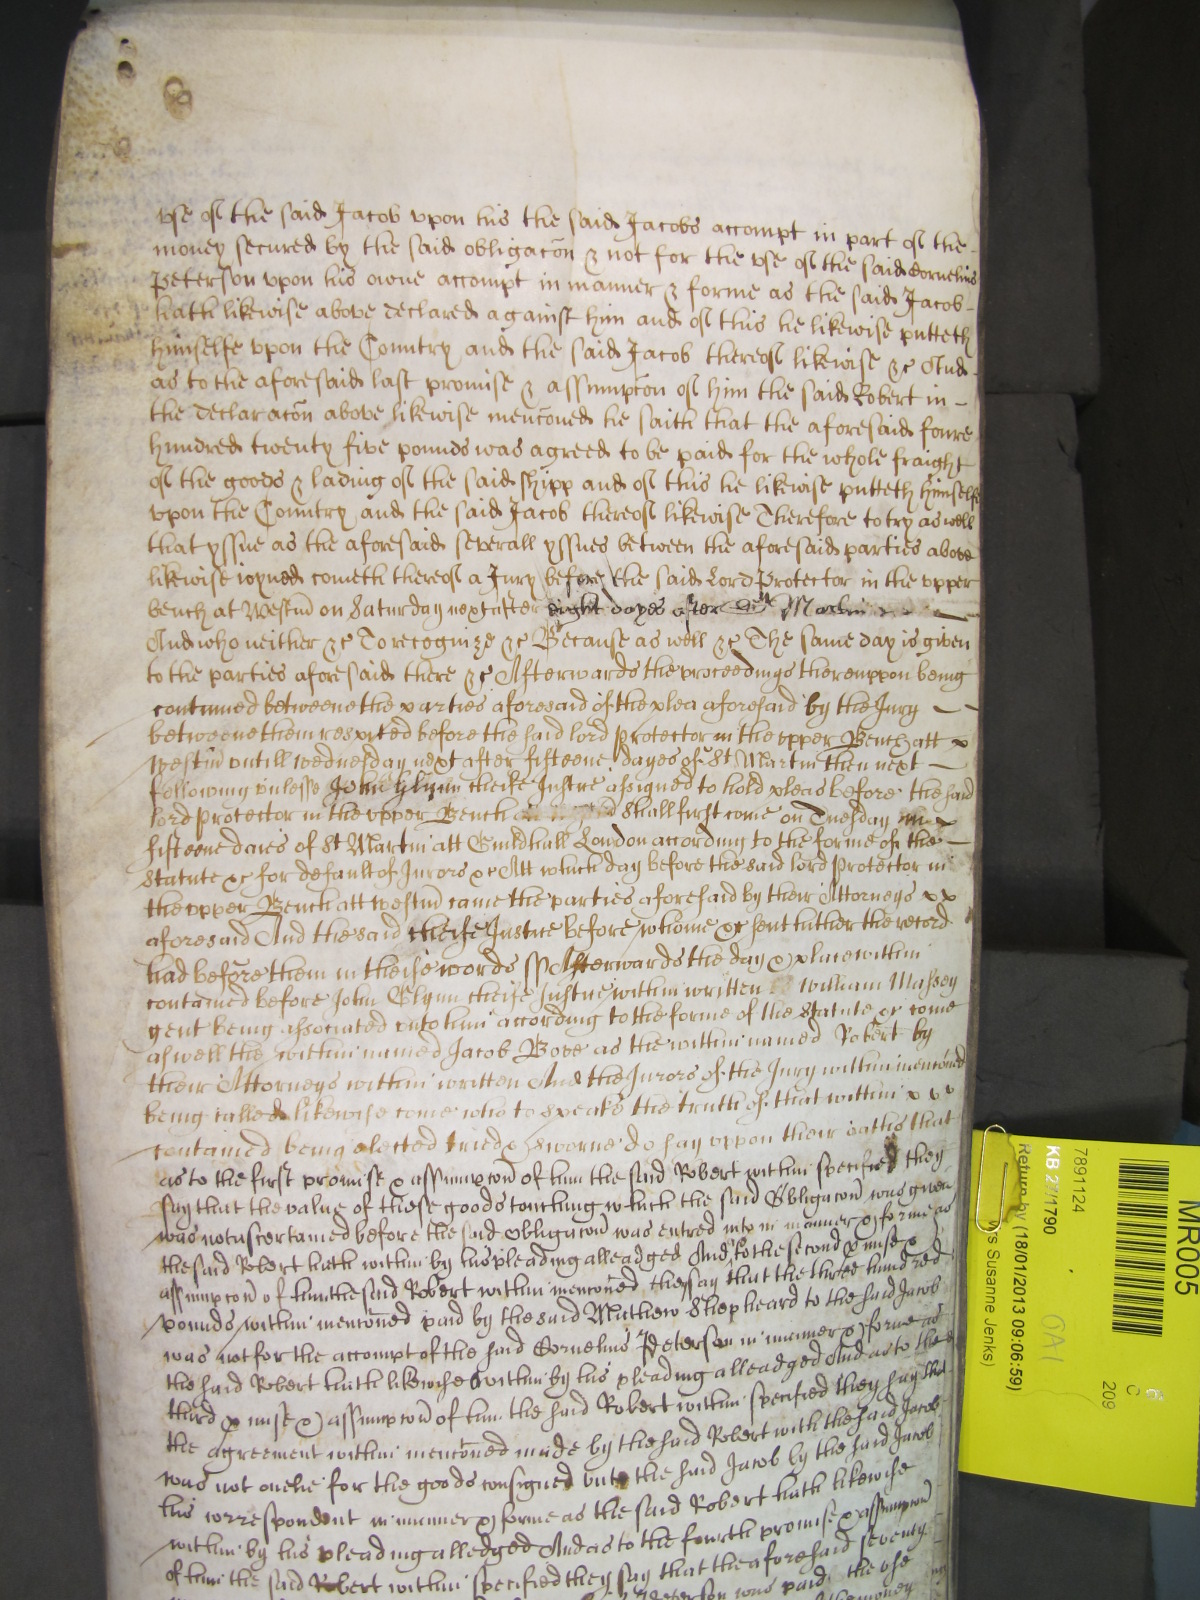 vse of the said Jacob vpon his the said Jacobs accompt in part of the
money secured by the said obligacōn & not for the vse of the said Cornelius
Peterson vpon his owne accompt in manner & forme as the said Jacob
hath likewise above declared against him and of this he likewise putteth
himselfe vpon the Country and the said Jacob thereof likewise &c And
as to the aforesaid last promise & assumpcōn of him the said Robert in
the declaracōn above likewise mencōned he saith that the aforesaid foure
hundred twenty five pounds was agreed to be paid for the whole fraight
of the goods & lading of the said shipp and of this he likewise putteth himselfe
vpon the Country and the said Jacob thereof likewise Therefore to try as well
that yssue as the aforesaid severall yssues between the aforesaid parties above
likewise ioyned cometh thereof a Jury before the said Lord Protector in the vpper
bench at Westm̄ on Saturday next after eight dayes after St Martin
And who neither &c To recognize &c Because as well &c The same day is given
to the parties aforesaid there &c Afterwards the proceedings thereuppon being
continued betweene the parties aforesaid of the plea aforesaid by the Jury
betweene them respited before the said lord protector in the vpper Bench att
Westm̄ vntill wednesday next after fifteene dayes of St Martin then next
following vnlesse John Glynn cheife Justice assigned to hold pleas before the said
lord protector in the vpper Bench shall first come on Tuesday
fifteene daies of St Martin att Guildhall London according to the forme of the
Statute &c for default of Jurors &c Att which day before the said lord protector in
the vpper Bench att westm̄ came the parties aforesaid by their Attorneys
aforesaid And the said cheife Justice before whome &c sent hither the record
had before them in theise words ss Afterwards the day & place within
contained before John Glynn cheife Justice within written William Massey
gent being associated vnto him according to the forme of the Statute &c come
aswell the within named Jacob Bove as the within named Robert by
their Attorneys within written And the Jurors of the Jury within mencōned
being called likewise come who to speake the truth of that within
contained being elected tried & sworne do say vppon their oathes that
as to the first promise & assumpcōn of him the said Robert within specified they
say that the value of those goods touching which the said Obligacōn was given
was not ascertained before the said obligacōn was entred into in manner & forme as
the said Robert hath within by his pleading alleadged And to the second p̄mise &
assumpcōn of him the said Robert within mencōned they say that the three hundred
pounds within mencōned paid by the said Mathew Shepheard to the said Jacob
was not for the accompt of the said Cornelius Peterson in manner & forme as
the said Robert hath likewise within by his pleading alleadged And as to the
third p̄mise & assumpcōn of him the said Robert within specified they say that
the agreement within mencōned made by the said Robert with the said Jacob
was not onelie for the goods consigned vnto the said Jacob by the said Jacob
his correspondent in manner & forme as the said Robert hath likewise
within by his pleading alledged And as to the fourth promise & assumpcōn
of him the said Robert within specified they say that the aforesaid seventy
Peterson was paid the vse
money
MR005
7891124
KB 27/1790
Return by (18/01/2013 09:06:59)
Susanne Jenks)
C
209